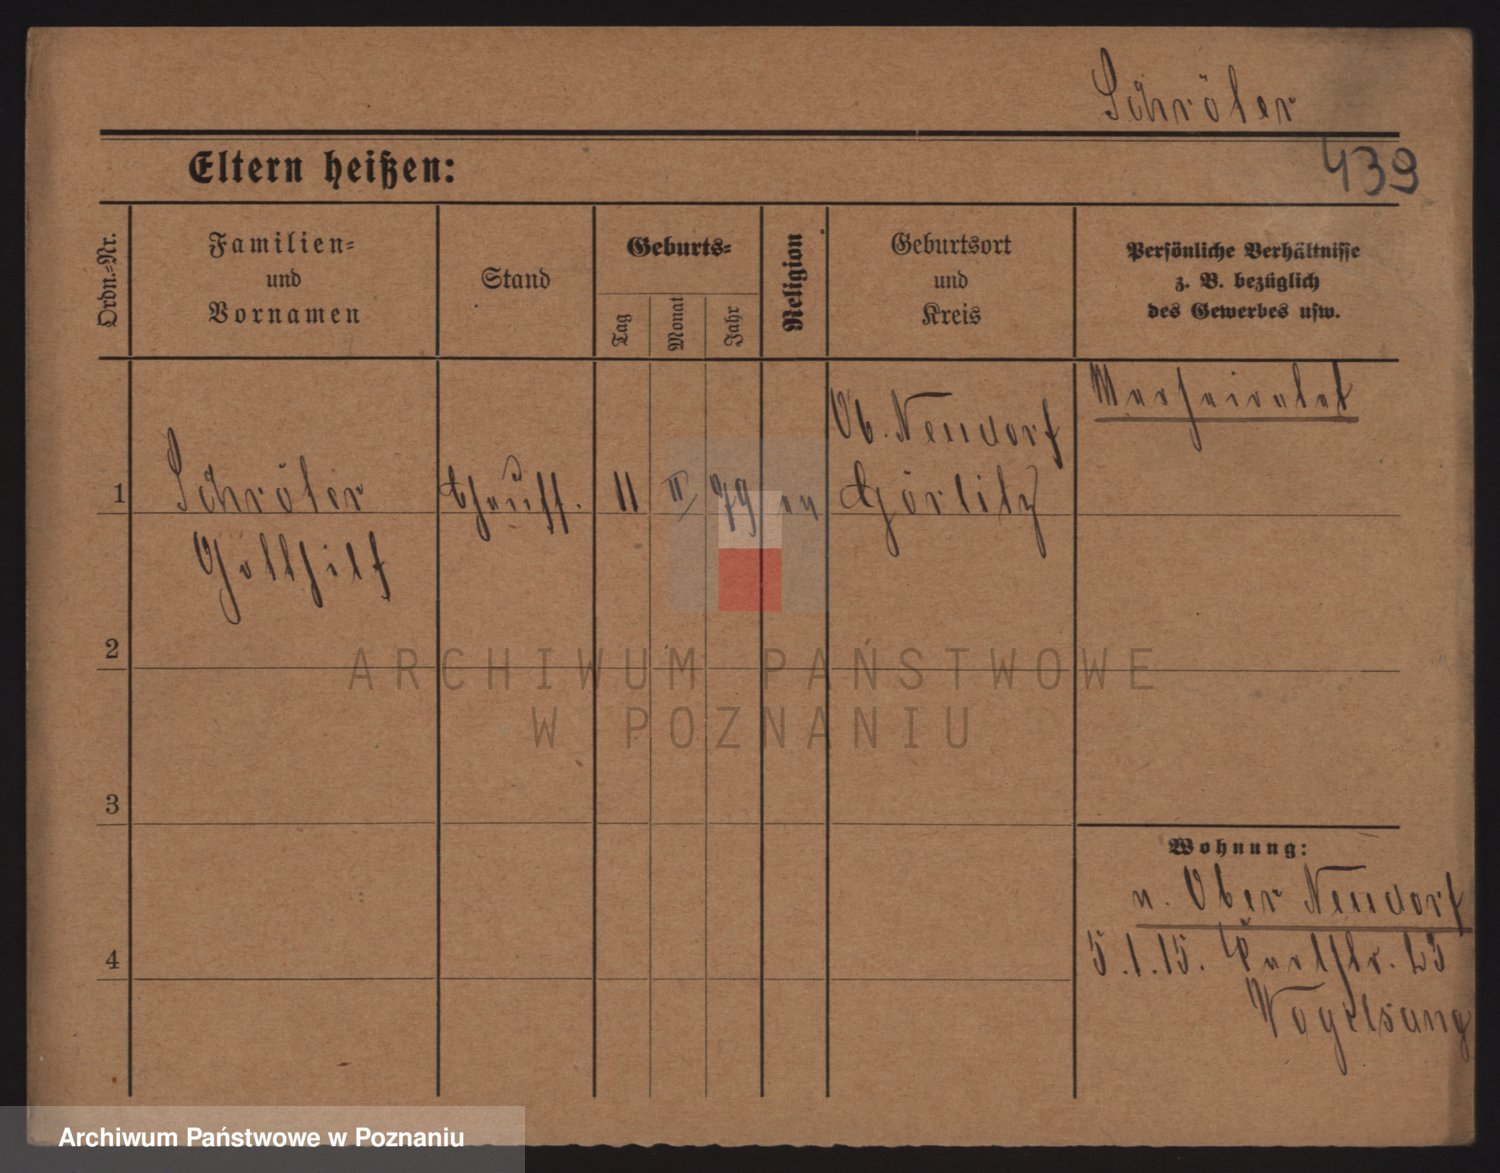 Schröter
439
Eltern heißen:
Ordn.-Nr.
Familien-
und
Vornamen
Stand
Geburts-
Tag
Monat
Jahr
Religion
Geburtsort
und
Kreis
Persönliche Verhältnisse
z. B. bezüglich
des Gewerbes usw.
Verheiratet
Ob. Neudorf
1
Schröter
11
II
79
ev
Görlitz
Gotthilf
2
ARCHIWUM PAŃSTWOWE
W POZNANIU
3
Wohnung:
n. Ober Neudorf
4
5.1.15. 23
Vogelsang
Archiwum Państwowe w Poznaniu